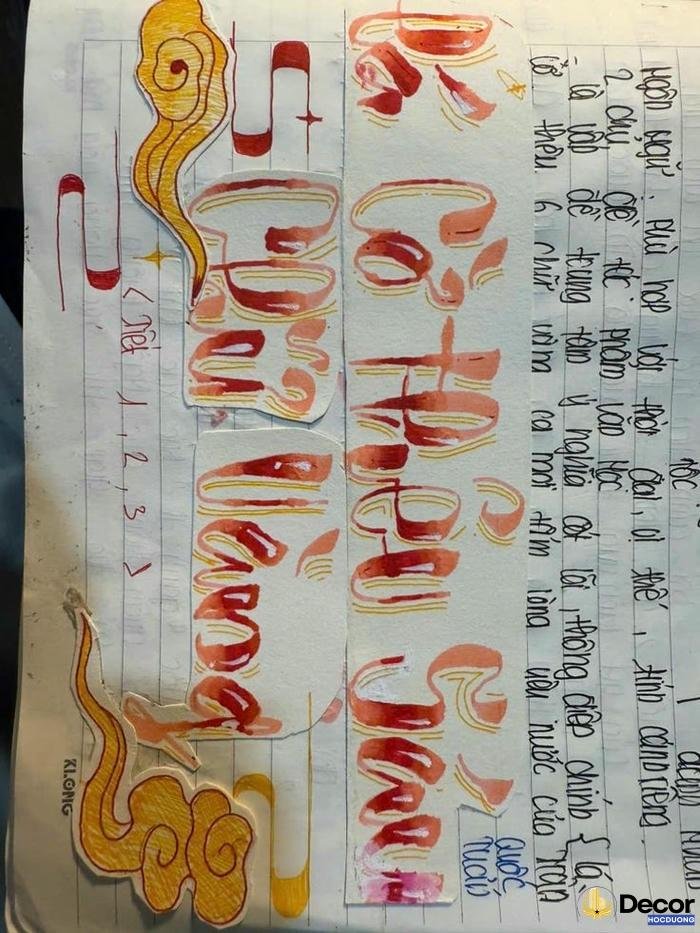 tộc
Ngôn ngữ: Phù hợp với thời đại, vị thế, tình cảm riêng
2 chủ đề tác phẩm văn học
- là vấn đề trung tâm ý nghĩa cốt lõi, thông điệp chính
thêu 6 chữ vàng ca ngợi tấm lòng yêu nước của Trần
Quốc
Tuấn
Lá Cờ Thêu Sáu
Chữ Vàng
< Tiết 1, 2, 3 >
KI.ONG
Decor
HOCDUONG